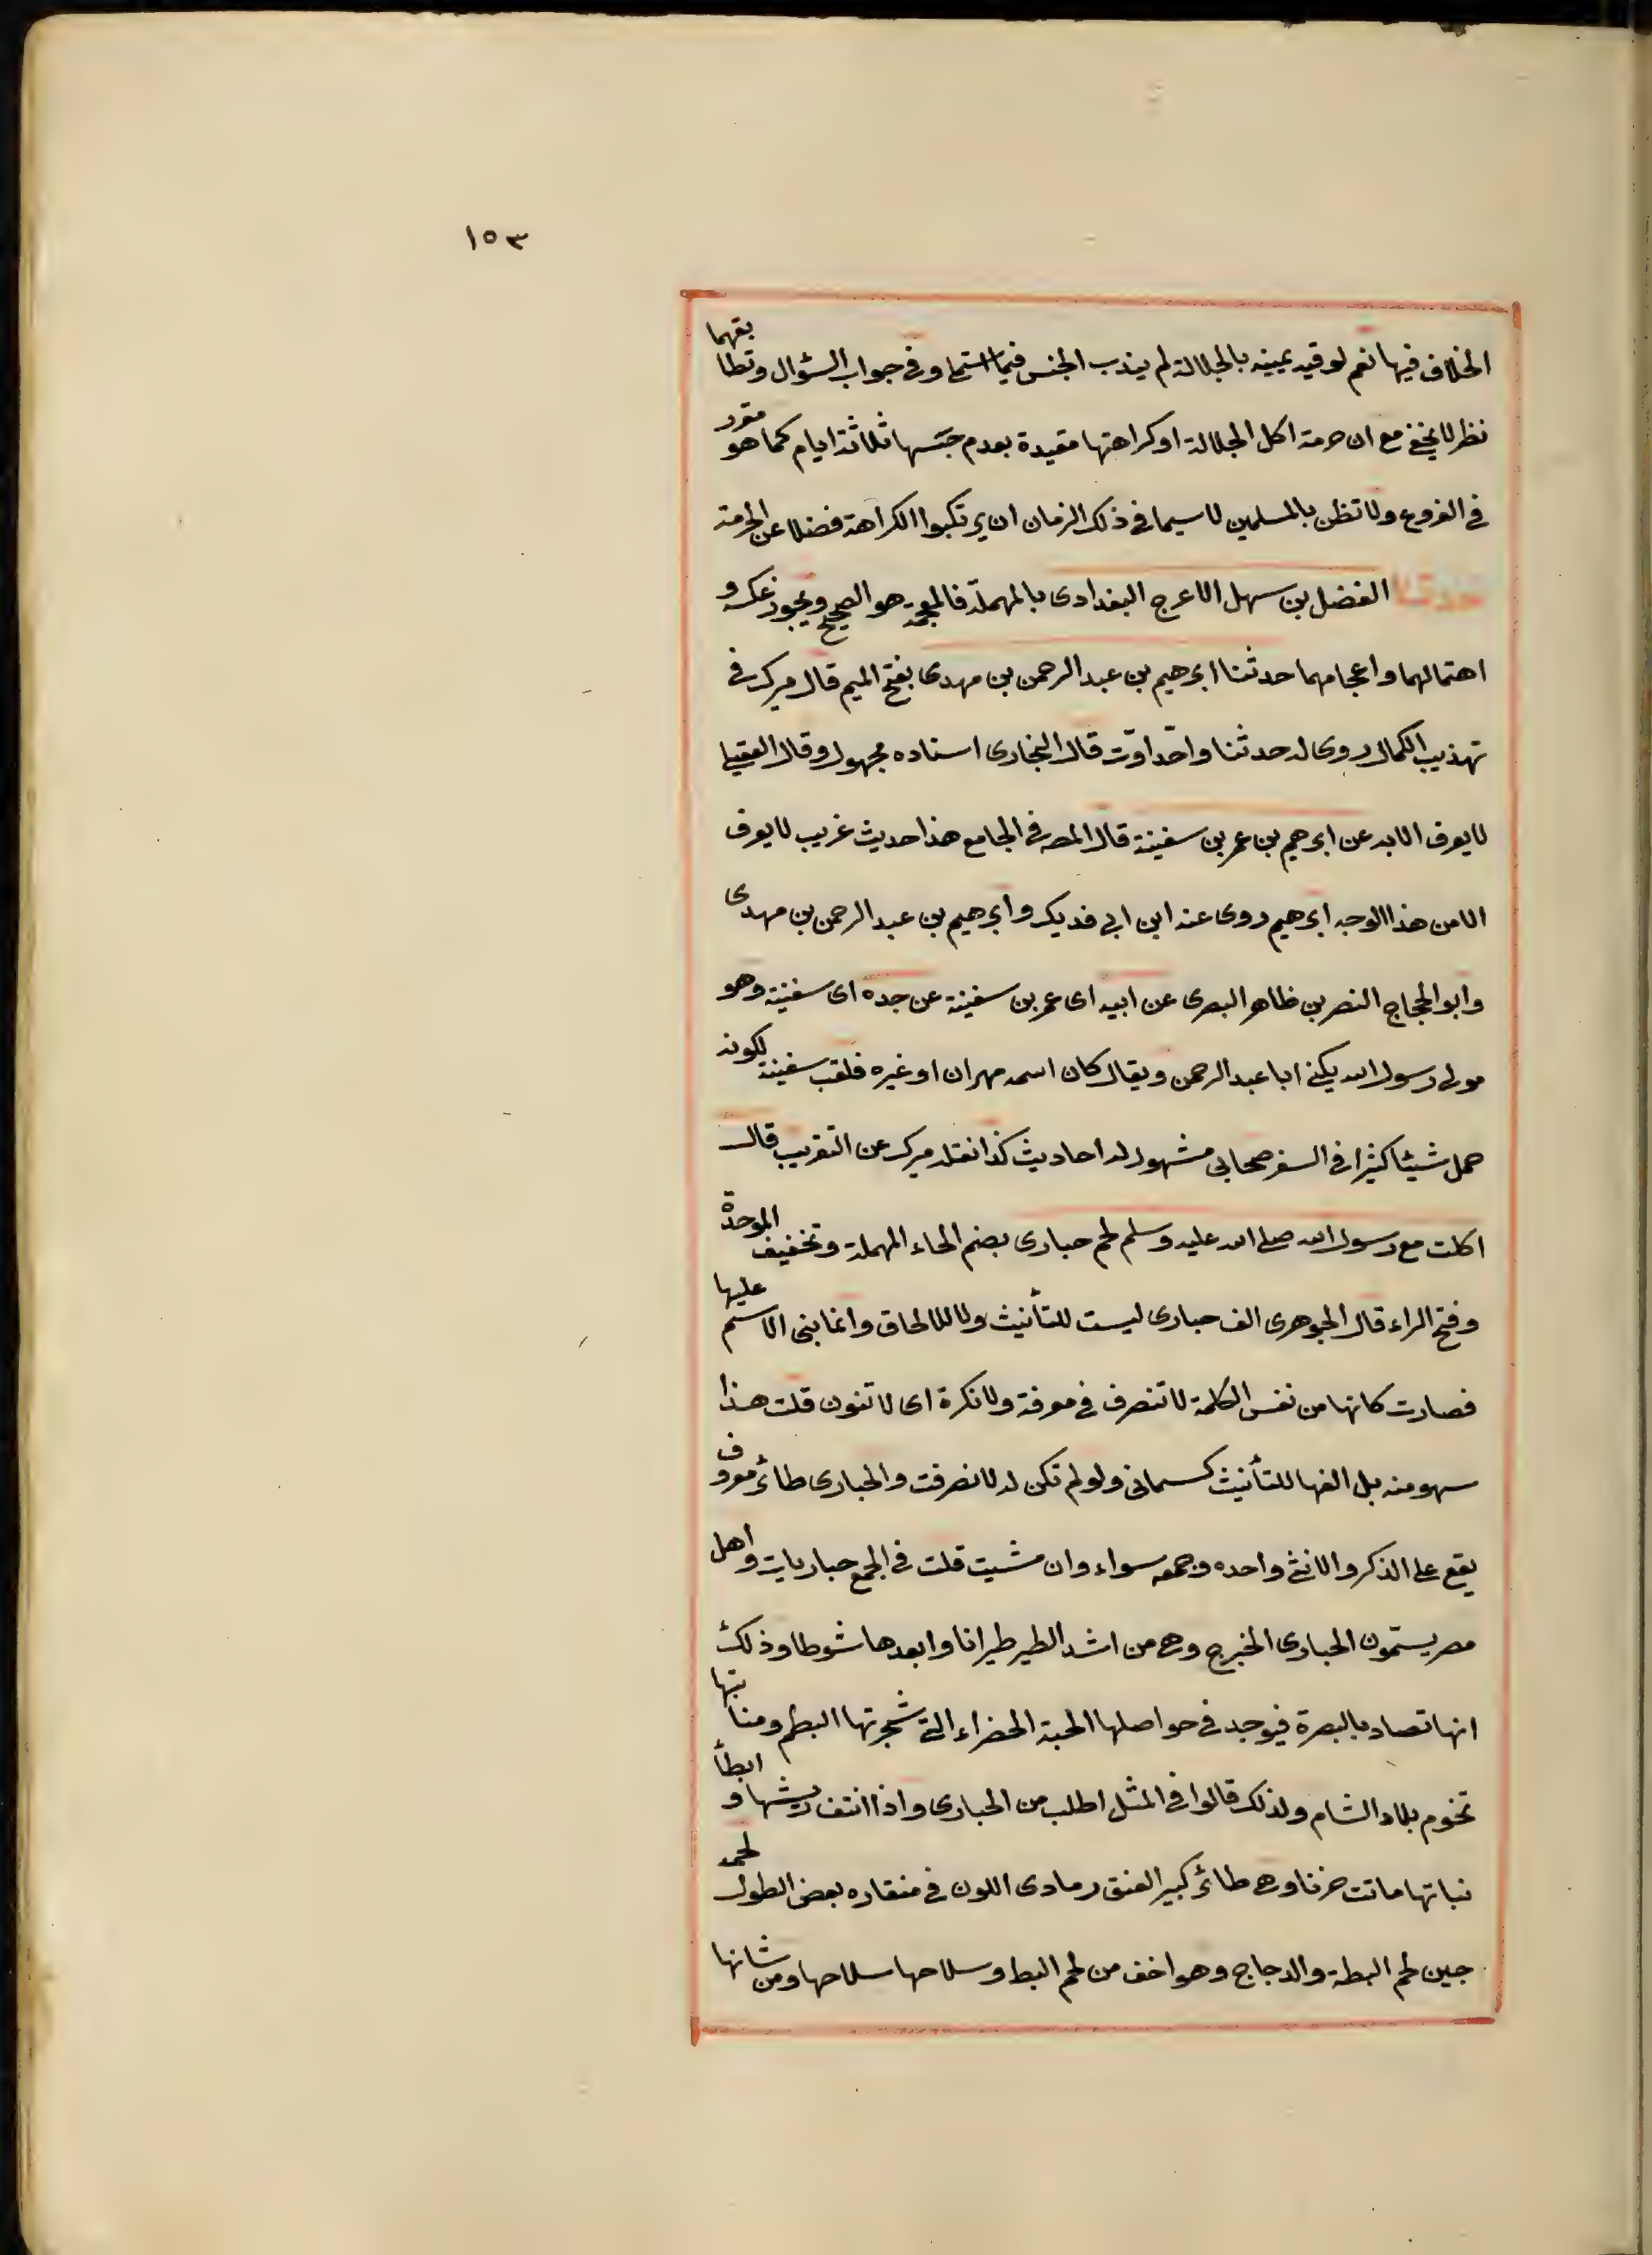 ١٥٣
الخلاف فيها نعم لو قيد يمينه بالجلالة لم يندب الحنث وفي جواب السؤال وتطابقهما
نظر لا يخفى مع ان حرمة اكل الجلالة او كراهتها مقيدة بعدم حبسها ثلاثة ايام كما هو مقرر
في الفروع ولا تظن بالمسلمين لا سيما في ذلك الزمان ان يرتكبوا الكراهة فضلا عن الحرمة
حدثنا الفضل بن سهل الاعرج البغدادى بالمهملة فالمعجمة هو الصحيح ويجوز عكسه و
اهمالهما واعجامهما حدثنا ابرهيم بن عبد الرحمن بن مهدى بفتح الميم قال ميرك في
تهذيب الكمال روى له حدثنا واحدا وت قال البخارى اسناده مجهول وقال العقيلي
لا يعرف الا به عن ابرهيم بن عمر بن سفينة قال المصـ في الجامع هذا حديث غريب لا يعرف
الا من هذا الوجه ابرهيم روى عنه ابن ابي فديك وابرهيم بن عبد الرحمن بن مهدى
وابو الحجاج النضر بن طاهر البصرى عن ابيه اى عمر بن سفينة عن جده اى سفينة وهو
مولى رسول الله يكنى ابا عبد الرحمن ويقال كان اسمه مهران او غيره فلقب سفينة لكونه
حمل شيئا كثيرا في السفر صحابى مشهور له احاديث كذا نقله ميرك عن التقريب قال
اكلت مع رسول الله صلى الله عليه وسلم لحم حبارى بضم الحاء المهملة وتخفيف الموحدة
وفتح الراء قال الجوهرى الف حبارى ليست للتأنيث ولا للالحاق وانما بنى الاسم عليها
فصارت كانها من نفس الكلمة لا تنصرف في معرفة ولا نكرة اى لا تنون قلت هذا
سهو منه بل الفها للتأنيث كسمانى ولو لم تكن له لانصرفت والحبارى طائر معروف
يقع على الذكر والانثى واحده وجمعه سواء وان شيت قلت في الجمع حباريات واهل
مصر يسمون الحبارى الخبرج وهى من اشد الطير طيرانا وابعدها شوطا وذلك
انها تصاد بالبصرة فيوجد في حواصلها الحبة الخضراء التي شجرتها البطم ومنابتها
تخوم بلاد الشام ولذلك قالوا في المثل اطلب من الحبارى واذا انتف ريشها وابطأ
نباتها ماتت حزنا وهى طائر كبير العنق رمادى اللون في منقاره بعض الطول لحمه
بين لحم البطة والدجاج وهو اخف من لحم البط وسلاحها سلاحها ومن شانها